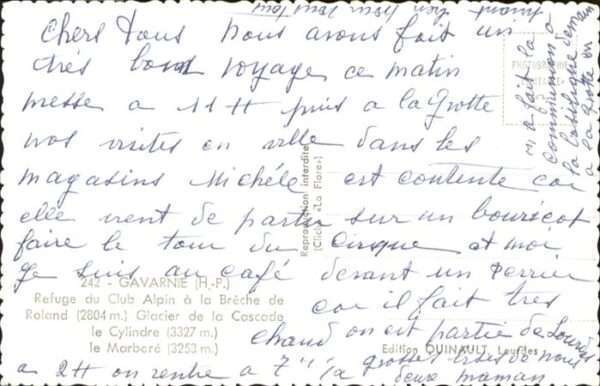 chers tous nous avons fait un
très bon voyage ce matin
messe a 11H puis a la Grotte
nos visites en ville dans les
magasins Michéle est contente car
elle vient de partir sur un bouricot
faire le tour du Cirque et moi
je suis au café devant un Perrier
car il fait tres
chaud on est partie de Lourdes
a 2H on rentre a 7H 1/2 grosses bises de nous
deux maman
on a fait la
communion a
la basilique demain
a la grotte on
priant bien pour vous tous
242 - GAVARNIE (H.-P.)
Refuge du Club Alpin à la Brèche de
Roland (2804 m.) Glacier de la Cascade
le Cylindre (3327 m.)
le Marboré (3253 m.)
Reproduction interdite
(Cliché «La Flore»)
Edition QUINAULT, Lourdes